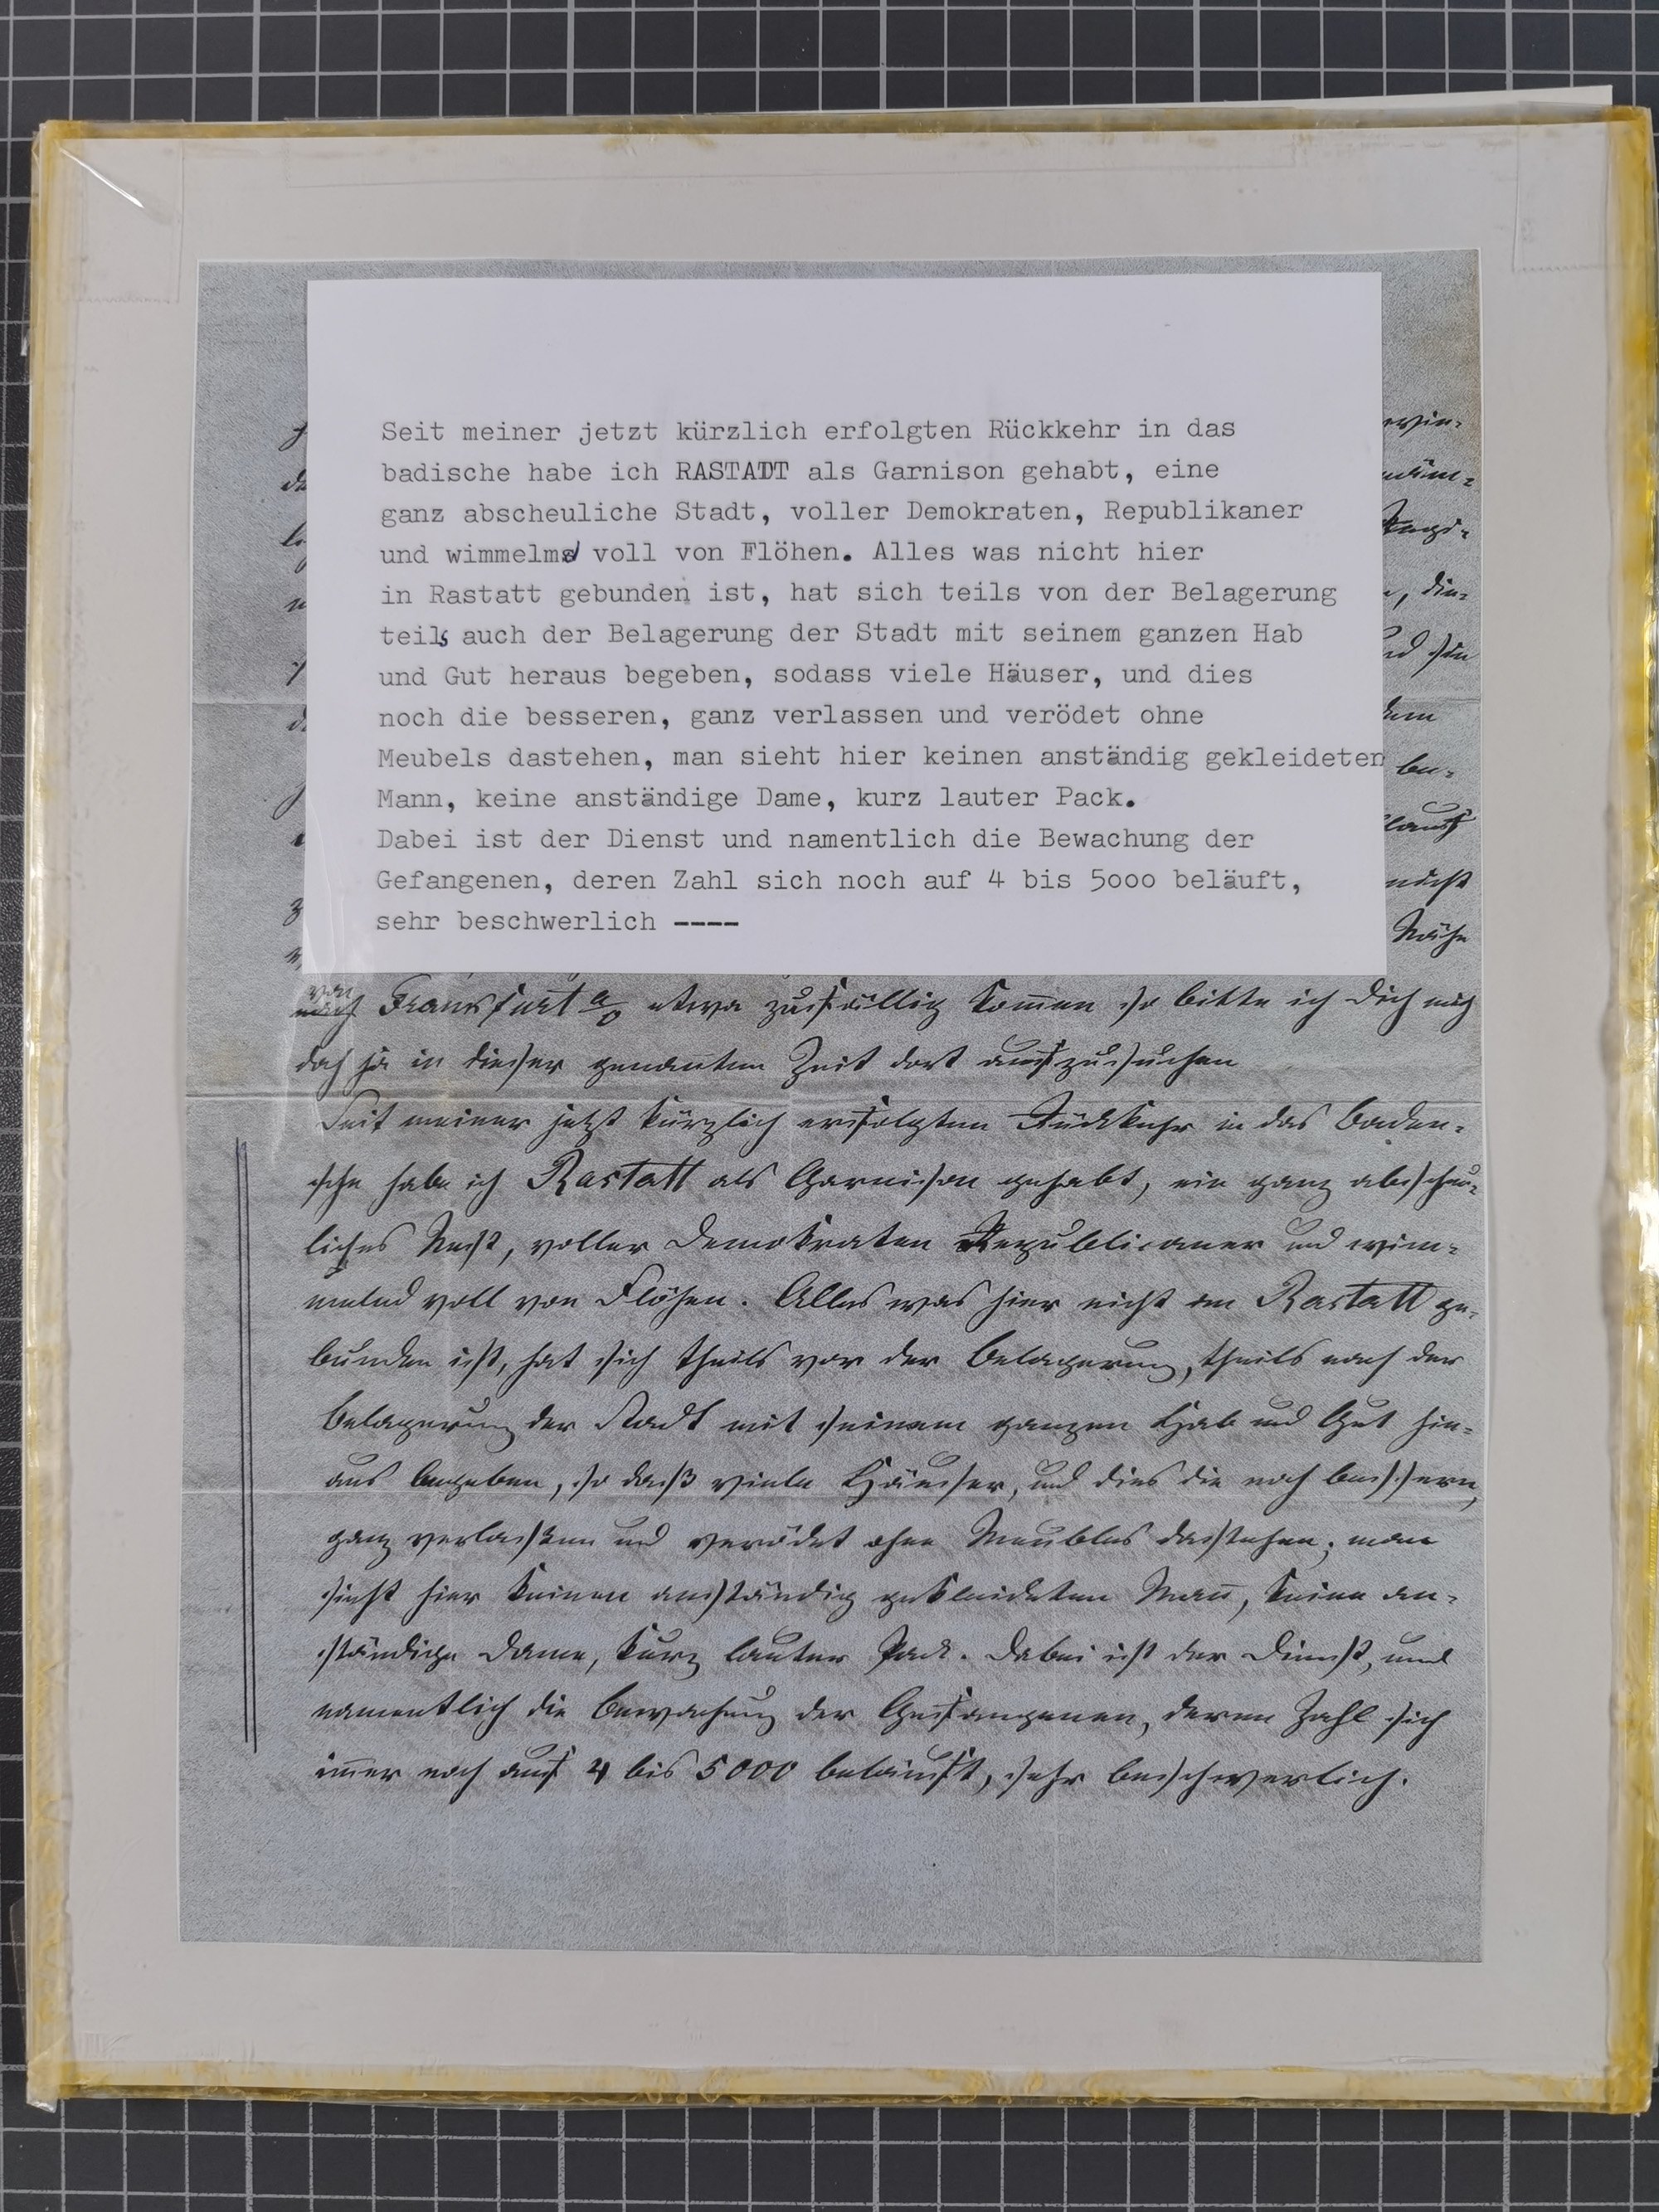 Seit meiner jetzt kürzlich erfolgten Rückkehr in das
badische habe ich RASTADT als Garnison gehabt, eine
ganz abscheuliche Stadt, voller Demokraten, Republikaner
und wimmelnd voll von Flöhen. Alles was nicht hier
in Rastatt gebunden ist, hat sich teils von der Belagerung
teils auch der Belagerung der Stadt mit seinem ganzen Hab
und Gut heraus begeben, sodass viele Häuser, und dies
noch die besseren, ganz verlassen und verödet ohne
Meubels dastehen, man sieht hier keinen anständig gekleideten
Mann, keine anständige Dame, kurz lauter Pack.
Dabei ist der Dienst und namentlich die Bewachung der
Gefangenen, deren Zahl sich noch auf 4 bis 5000 beläuft,
sehr beschwerlich ----
und sein
dem
be-
nicht
Nähe
von
Frankfurt a/O etwa zufällig komen so bitte ich Dich mich
doch ja in dieser genanten Zeit dort aufzusuchen
Seit meiner jetzt kürzlich erfolgten Rückkehr in das Baden-
sche habe ich Rastatt als Garnison gehabt, ein ganz abscheu-
liches Nest, voller Demokraten Republicaner und wim-
melnd voll von Flöhen. Alles was hier nicht an Rastatt ge-
bunden ist, hat sich theils vor der Belagerung, theils nach der
Belagerung der Stadt mit seinem ganzen Hab und Gut hin-
aus begeben, so daß viele Häuser, und dies die noch bessern,
ganz verlassen und verödet ohne Meubles dastehen; man
sieht hier keinen anständig gekleideten Man, keine an-
ständige Dame, kurz lauter Pack. Dabei ist der Dienst, und
namentlich die Bewachung der Gefangenen, deren Zahl sich
imer noch auf 4 bis 5000 beläuft, sehr beschwerlich.